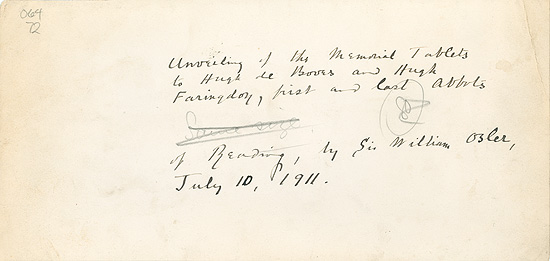 064
Unveiling of the Memorial Tablets
to Hugh de Boves and Hugh
Faringdon, first and last Abbots
Same size
of Reading, by Sir William Osler,
July 10, 1911.